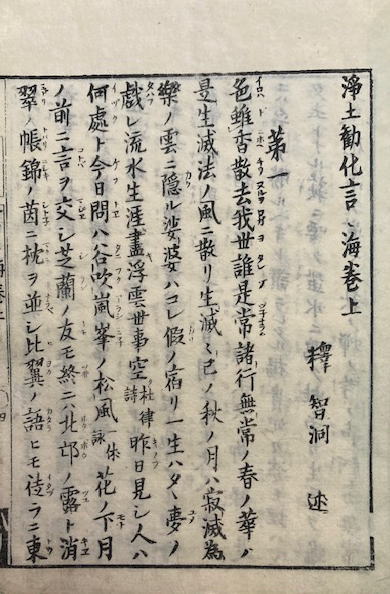 淨土勸化言海巻上
釋智洞述
第一
色雖香散去我世誰是常諸行無常ノ春ノ華ハ
是生滅法ノ風ニ散リ生滅〻已ノ秋ノ月ハ寂滅為
樂ノ雲ニ隱ル娑婆ハコレ假ノ宿リ一生ハタヽ夢ノ
戯レ流水生涯盡浮雲世事空杜律詩昨日見シ人ハ
何處ト今日問ハ谷吹嵐峯ノ松風休詠花ノ下月
ノ前ニ言ヲ交シ芝蘭ノ友モ終ニハ北邙ノ露ト消
翠ノ帳錦ノ茵ニ枕ヲ並シ比翼ノ語ヒモ徒ラニ東